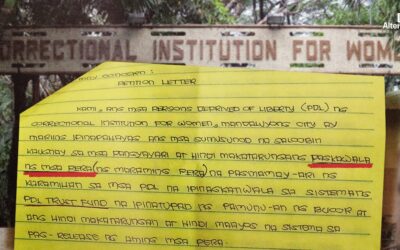 Alter
CORRECTIONAL INSTITUTION FOR WOME
PETITION LETTER
KAMI, ANG MGA PERSONS DEPRIVED OF LIBERTY (PDL) NG
CORRECTIONAL INSTITUTION FOR WOMEN, MANDALUYONG CITY AY
MARIING IPINAPAHAYAG ANG MGA SUMUSUNOD NA SALOOBIN
KAUGNAY SA MGA PANGYAYARI AT HINDI MAKATARUNGANG PAGKAWALA
NG MGA PERA (NG MARAMING PERA) NA PAGMAMAY-ARI NG
KARAMIHAN SA MGA PDL NA IPINAGKATIWALA SA SISTEMANG
PDL TRUST FUND NA IPINATUPAD NG PAMUNU-AN NG BUCOR AT
ANG HINDI MAKATARUNGAN AT HINDI MAAYOS NA SISTEMA SA
PAG-RELEASE NG AMING MGA PERA.